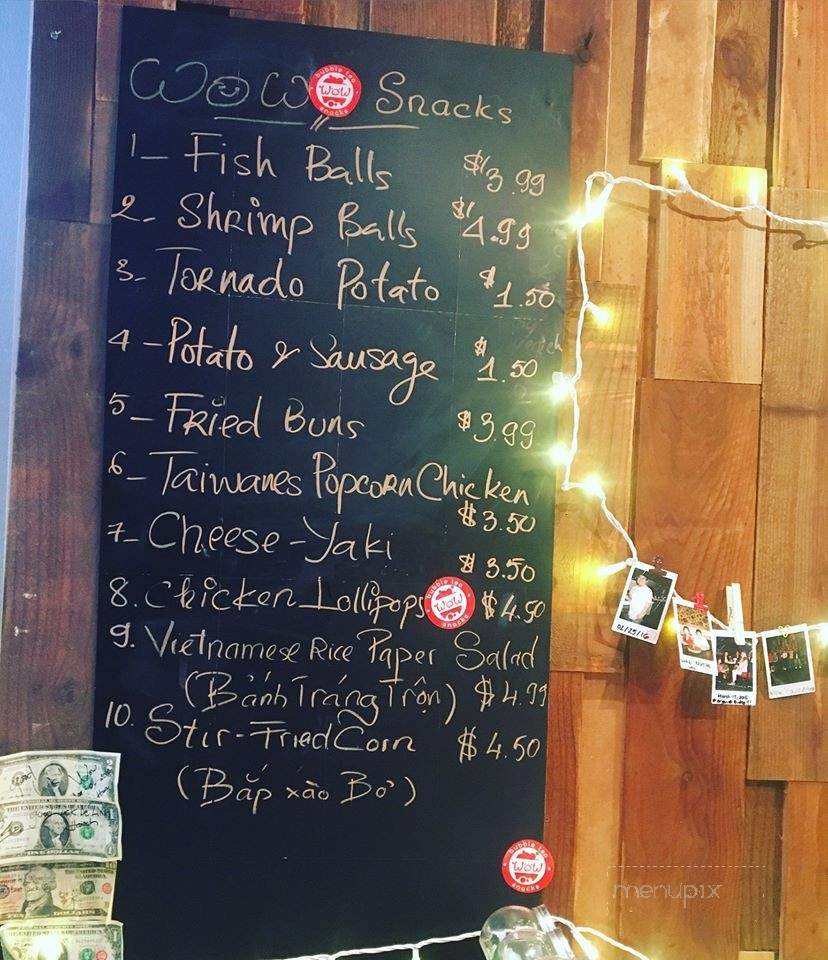 WOW Snacks
bubble tea
WOW
snacks
1- Fish Balls $3.99
2- Shrimp Balls $4.99
3- Tornado Potato $1.50
4- Potato & Sausage $1.50
5- Fried Buns $3.99
6- Taiwanes Popcorn Chicken
$3.50
7- Cheese-Yaki
$3.50
8. Chicken Lollipops $4.50
bubble tea
WOW
snacks
9. Vietnamese Rice Paper Salad
(Bánh Tráng Trộn) $4.99
10. Stir-Fried Corn $4.50
(Bắp xào Bơ)
02/25/16
bubble tea
WOW
snacks
ONE DOLLAR
DOLLARS
menupix